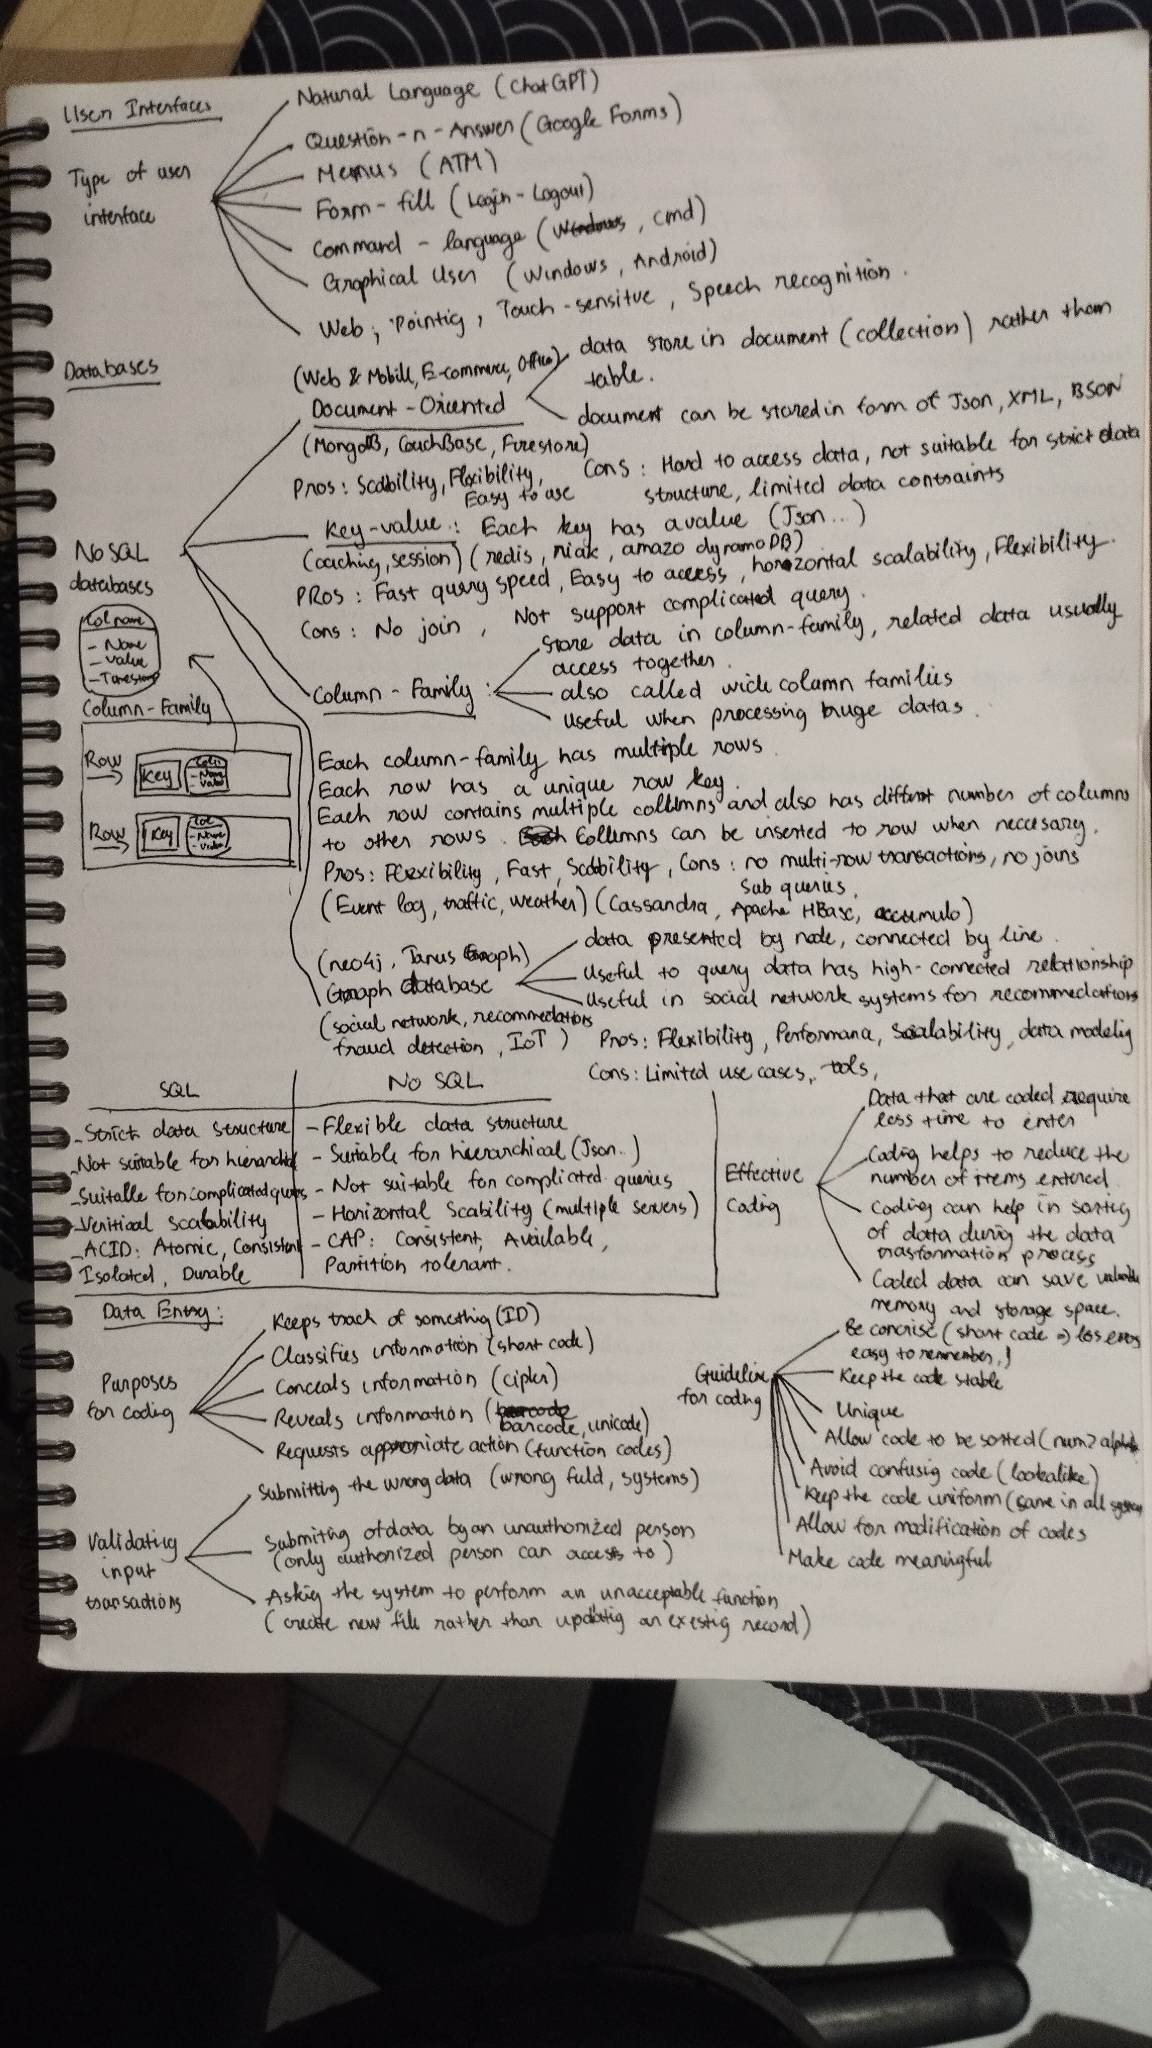 User Interfaces
Type of user
interface
Natural Language (ChatGPT)
Question-n-Answer (Google Forms)
Menus (ATM)
Form-fill (Login-Logout)
Command-language (Windows, cmd)
Graphical User (Windows, Android)
Web, Pointig, Touch-sensitve, Speech recognition.
Databases
NoSQL
databases
(Web & Mobile, E-commerce, Office)
Document-Oriented
data store in document (collection) rather than
table.
document can be stored in form of Json, XML, BSON
(MongoDB, CouchBase, Firestore)
Pros: Scability, Flexibility,
Easy to use
Cons: Hard to access data, not suitable for strict data
structure, limited data contraints
Key-value: Each key has a value (Json...)
(caching, session) (redis, riak, amazo dynamoDB)
PROs: Fast query speed, Easy to access, horizontal scalability, Flexibility.
Cons: No join, Not support complicated query.
Column-Family:
Store data in column-family, related data usually
access together.
also called wide column families
Useful when processing huge datas.
Col name
- Name
- Value
- Timestamp
Column-Family
Row
Key
Col1
- Name
- Value
Row
Key
Col
- Name
- Value
Each column-family has multiple rows.
Each row has a unique row key.
Each row contains multiple collumns and also has diffrent number of columns
to other rows. Each Collumns can be inserted to row when neccesary.
Pros: Flexibility, Fast, Scability, Cons: no multi-row transactions, no joins
Sub queries,
(Event log, traffic, weather) (Cassandra, Apache HBase, accumulo)
(neo4j, Janus Graph)
Graph database
(social network, recommedations
fraud detection, IoT)
data presented by node, connected by line.
Useful to query data has high-connected relationship
Useful in social network systems for recommedations
Pros: Flexibility, Performana, Scalability, data modelig
Cons: Limited use cases, tools,
SQL
- Strict data structure
- Not suitable for hierarchical
- Suitable for complicated querys
- Veritical scalability
- ACID: Atomic, Consistent
Isolated, Durable
No SQL
- Flexible data structure
- Suitable for hierarchical (Json..)
- Not suitable for complicated queries
- Horizontal Scability (multiple servers)
- CAP: Consistent, Available,
Partition tolerant.
Effective
Coding
Data that are coded require
less time to enter
Coding helps to reduce the
number of items entered
Coding can help in sortig
of data during the data
trasformation process
Coded data can save valuable
memory and storage space.
Data Entry:
Purposes
for coding
Keeps track of something (ID)
Classifies information (short code)
Conceals information (cipher)
Reveals information (barcode
barcode, unicode)
Requests appropriate action (function codes)
Guideline
for coding
Be concise (short code => less errors
easy to remember,)
Keep the code stable
Unique
Allow code to be sorted (num > alphab
Avoid confusig code (lookalike)
Keep the code uniform (same in all system
Allow for modification of codes
Make code meaningful
Validating
input
transactions
Submitting the wrong data (wrong field, systems)
Submiting of data by an unauthorized person
(only authorized person can access to)
Askig the system to perform an unacceptable function
(create new file rather than updatig an existig record)